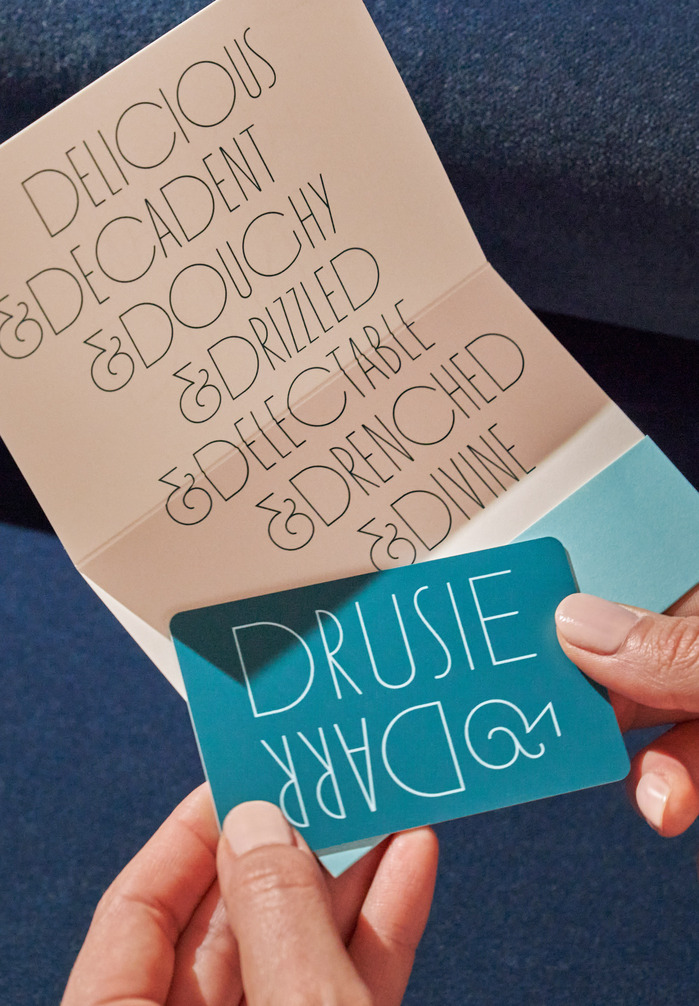 DELICIOUS
&DECADENT
&DOUGHY
&DRIZZLED
&DELECTABLE
&DRENCHED
&DIVINE
DRUSIE
&DARR